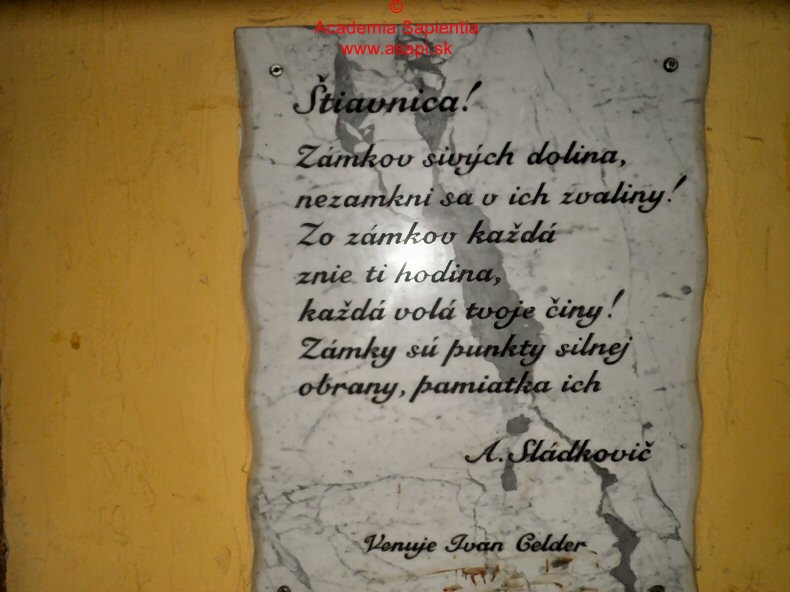 ©
Academia Sapientia
www.asapi.sk
Štiavnica!
Zámkov sivých dolina,
nezamkni sa v ich zvaliny!
Zo zámkov každá
znie ti hodina,
každá volá tvoje činy!
Zámky sú punkty silnej
obrany, pamiatka ich
A. Sládkovič
Venuje Ivan Gelder